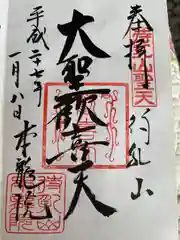 奉拝
待乳山聖天
待乳山
大聖歓喜天
平成二十七年
一月八日
本龍院